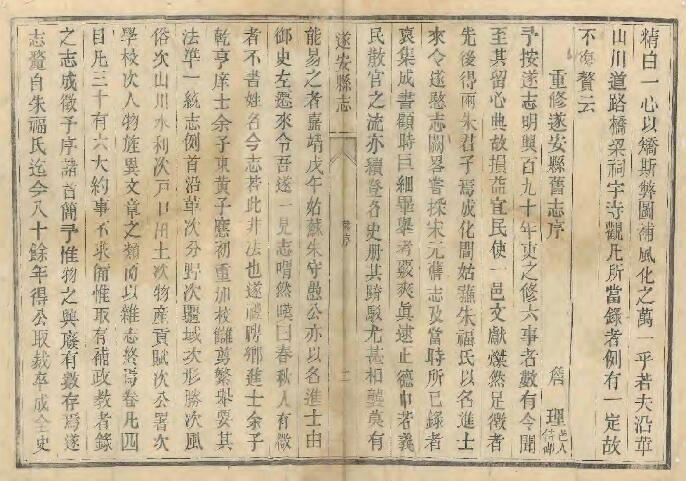 精白一心以矯斯弊圖補風化之萬一乎若夫沿革
山川道路橋梁祠宇寺觀凡所當錄者例有一定故
不復贅云
重修遂安縣舊志序
詹理邑人侍御
予按遂志明興百九十年吏之修六事者數有令聞
至其留心典故損益宜民使一邑文獻燦然足徵者
先後得兩朱君子焉成化間始蕭朱福氏以名進士
來令遂愍志闕畧嘗採宋元舊志及當時所已錄者
裒集成書顧時巨細畢舉考覈爽眞逮正德中若義
民散官之流亦續登名史册其踳駁尤甚相襲莫有
遂安縣志
舊序
二
能易之者嘉靖戊午始蘇朱守愚公亦以名進士由
御史左遷來令吾遂一見志喟然嘆曰春秋人有微
者不書姓名今志若此非法也遂禮聘鄉進士余子
乾亨庠士余子東黃子應初重加校讎剪繁舉要其
法準一統志例首沿革次分野次疆域次形勝次風
俗次山川水利次戸口田土次物產貢賦次公署次
學校次人物旌異文章之類而以雜志終焉卷凡四
目凡三十有六大約事不求備惟取有補政敎者錄
之志成徵予序諸首簡予惟物之興廢有數存焉遂
志蓋自朱福氏迄今八十餘年得公取裁存成全史